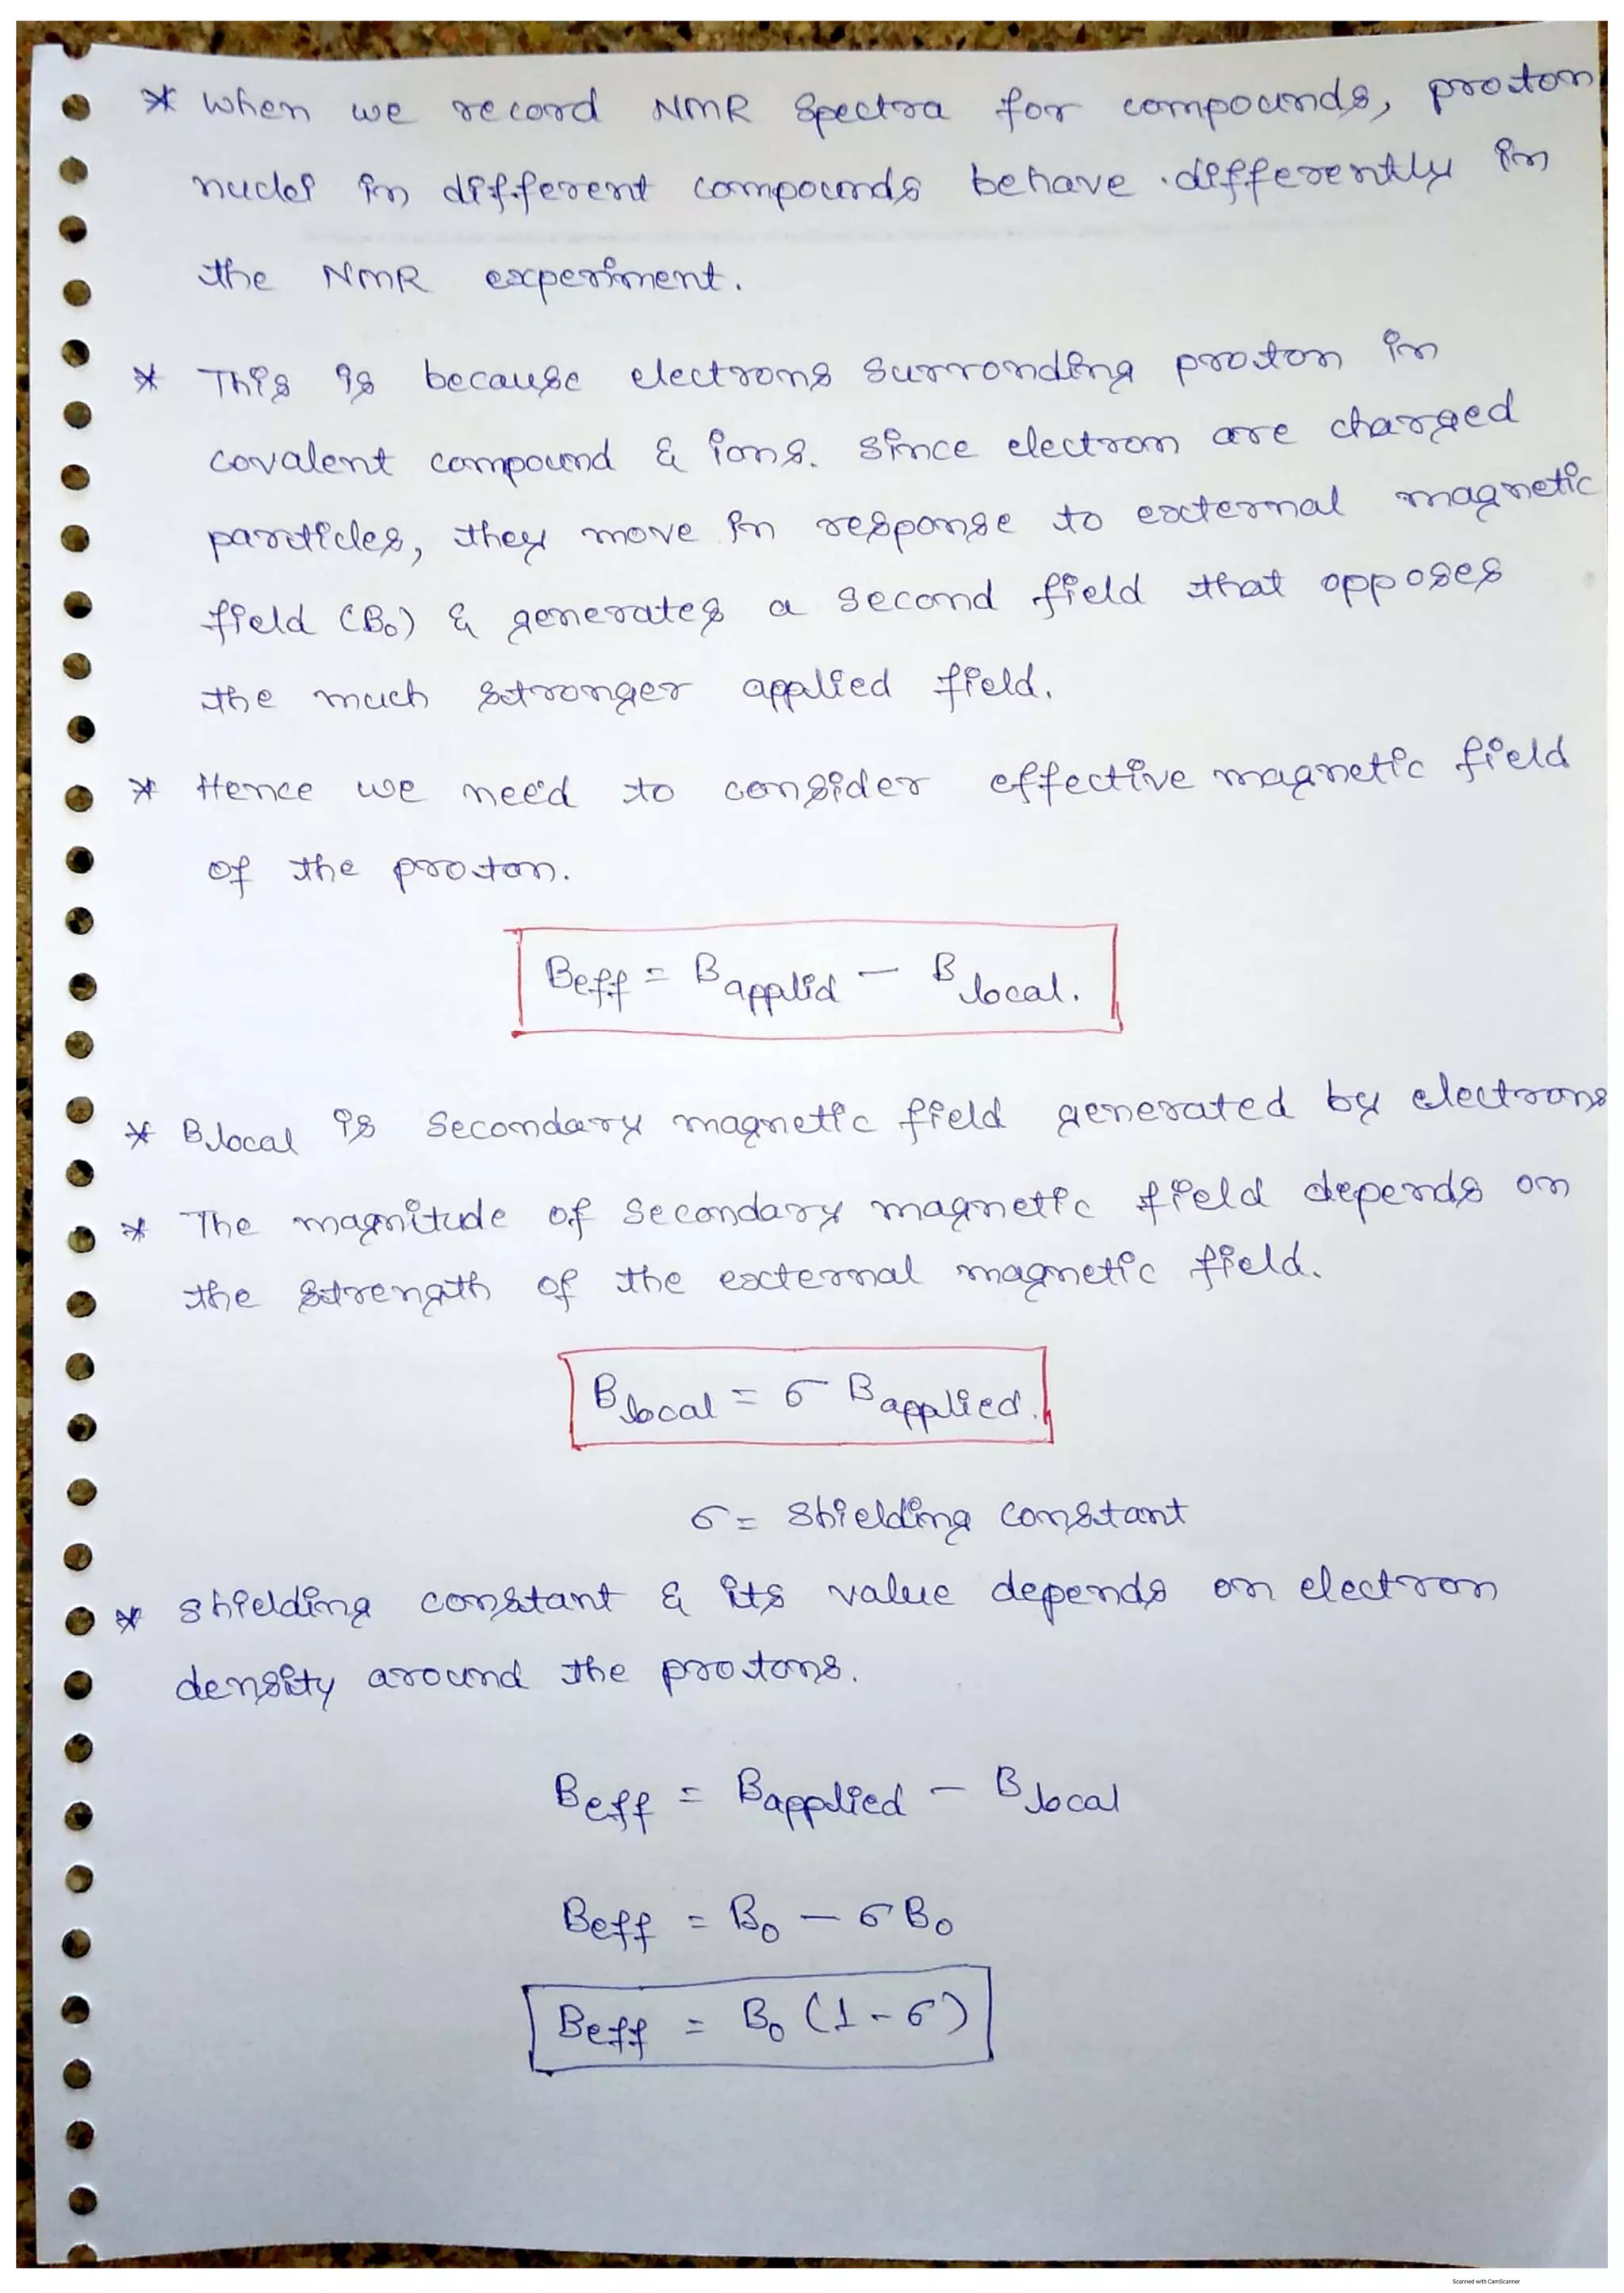 * When we record NMR Spectra for compounds, proton
nuclei in different compounds behave differently in
the NMR experiment.
* This is because electrons surronding proton in
covalent compound & ions. Since electron are charged
particles, they move in response to external magnetic
field (B₀) & generates a second field that opposes
the much stronger applied field.
* Hence we need to consider effective magnetic field
of the proton.
Beff = B applid - B local.
* B local is secondary magnetic field generated by electrons
* The magnitude of secondary magnetic field depends on
the strength of the external magnetic field.
B local = σ B applied.
σ = shielding constant
* shielding constant & its value depends on electron
density around the protons.
Beff = B applied - B local
Beff = B₀ - σ B₀
Beff = B₀ (1 - σ)
Scanned with CamScanner